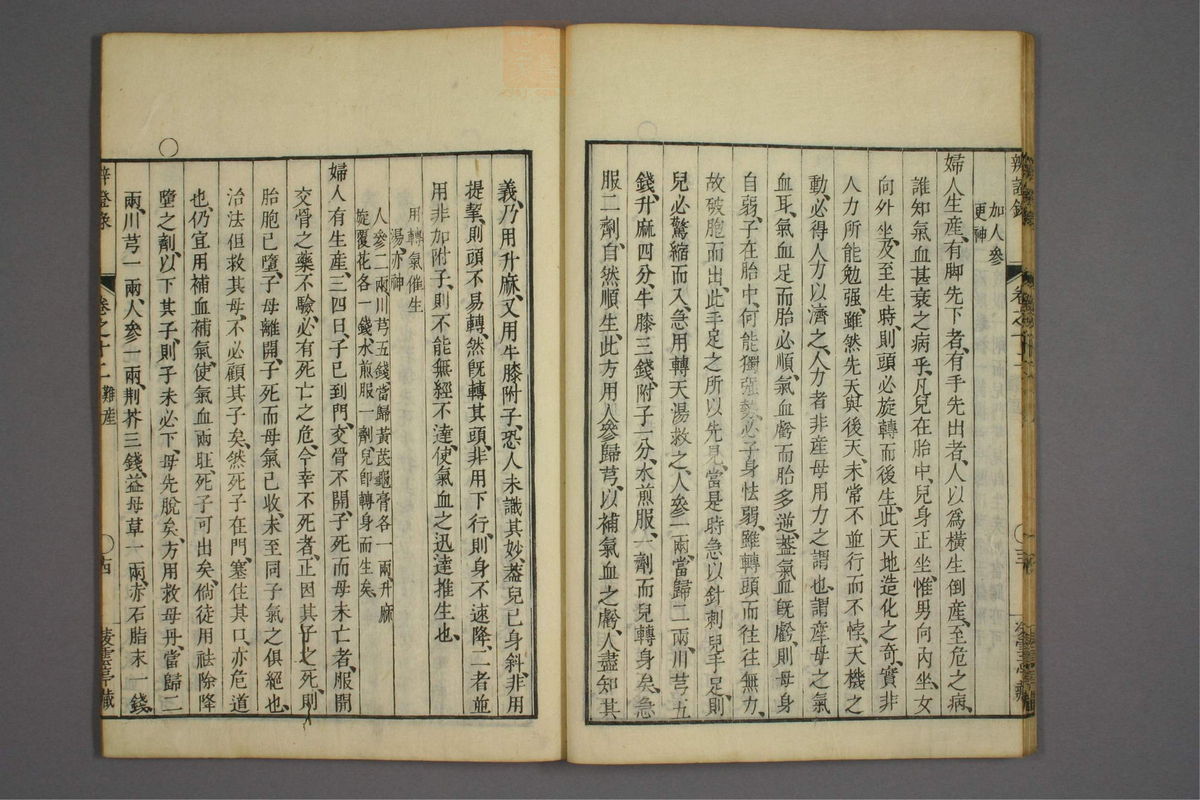 辨證錄
卷之十二
加人參
更神
婦人生産有脚先下者有手先出者人以爲橫生倒産至危之病
誰知氣血甚衰之病乎凡兒在胎中兒身正坐惟男向內坐女
向外坐及至生時則頭必旋轉而後生此天地造化之奇實非
人力所能勉强雖然先天與後天未常不並行而不悖天機之
動必得人力以濟之人力者非産母用力之謂也謂産母之氣
血耳氣血足而胎必順氣血虧而胎多逆葢氣血既虧則母身
自弱子在胎中何能獨强勢必子身怯弱雖轉頭而往往無力
故破胞而出此手足之所以先見當是時急以針刺兒手足則
兒必驚縮而入急用轉天湯救之人參二兩當歸二兩川芎五
錢升麻四分牛膝三錢附子一分水煎服一劑而兒轉身矣急
服二劑自然順生此方用人參歸芎以補氣血之虧人盡知其
義乃用升麻又用牛膝附子恐人未識其妙葢兒已身斜非用
提挈則頭不易轉然既轉其頭非用下行則身不速降二者並
用非加附子則不能無經不達使氣血之迅達推生也
用轉氣催生
湯亦神
人參二兩川芎五錢當歸黃芪龜膏各一兩升麻
旋覆花各一錢水煎服一劑兒卽轉身而生矣
婦人有生産三四日子已到門交骨不開子死而母未亡者服開
交骨之藥不驗必有死亡之危今幸不死者正因其子之死則
胎胞已墮子母離開子死而母氣已收未至同子氣之俱絕也
治法但救其母不必顧其子矣然死子在門塞住其口亦危道
也仍宜用補血補氣使氣血兩旺死子可出矣倘徒用祛除降
墮之劑以下其子則子未必下母先脫矣方用救母丹當歸二
兩川芎一兩人參一兩荆芥三錢益母草一兩赤石脂末一錢
辨證錄
卷之十二
難産